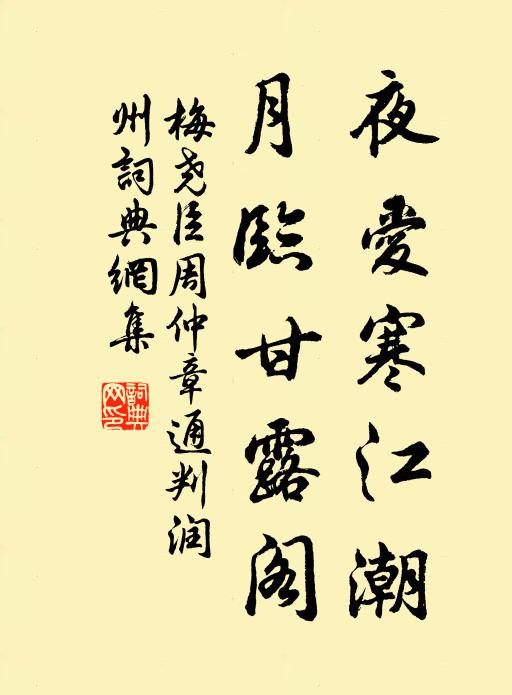 夜愛寒江潮
月臨甘露閣
梅尧臣周仲章通判润
州詞典網集
詞典網印